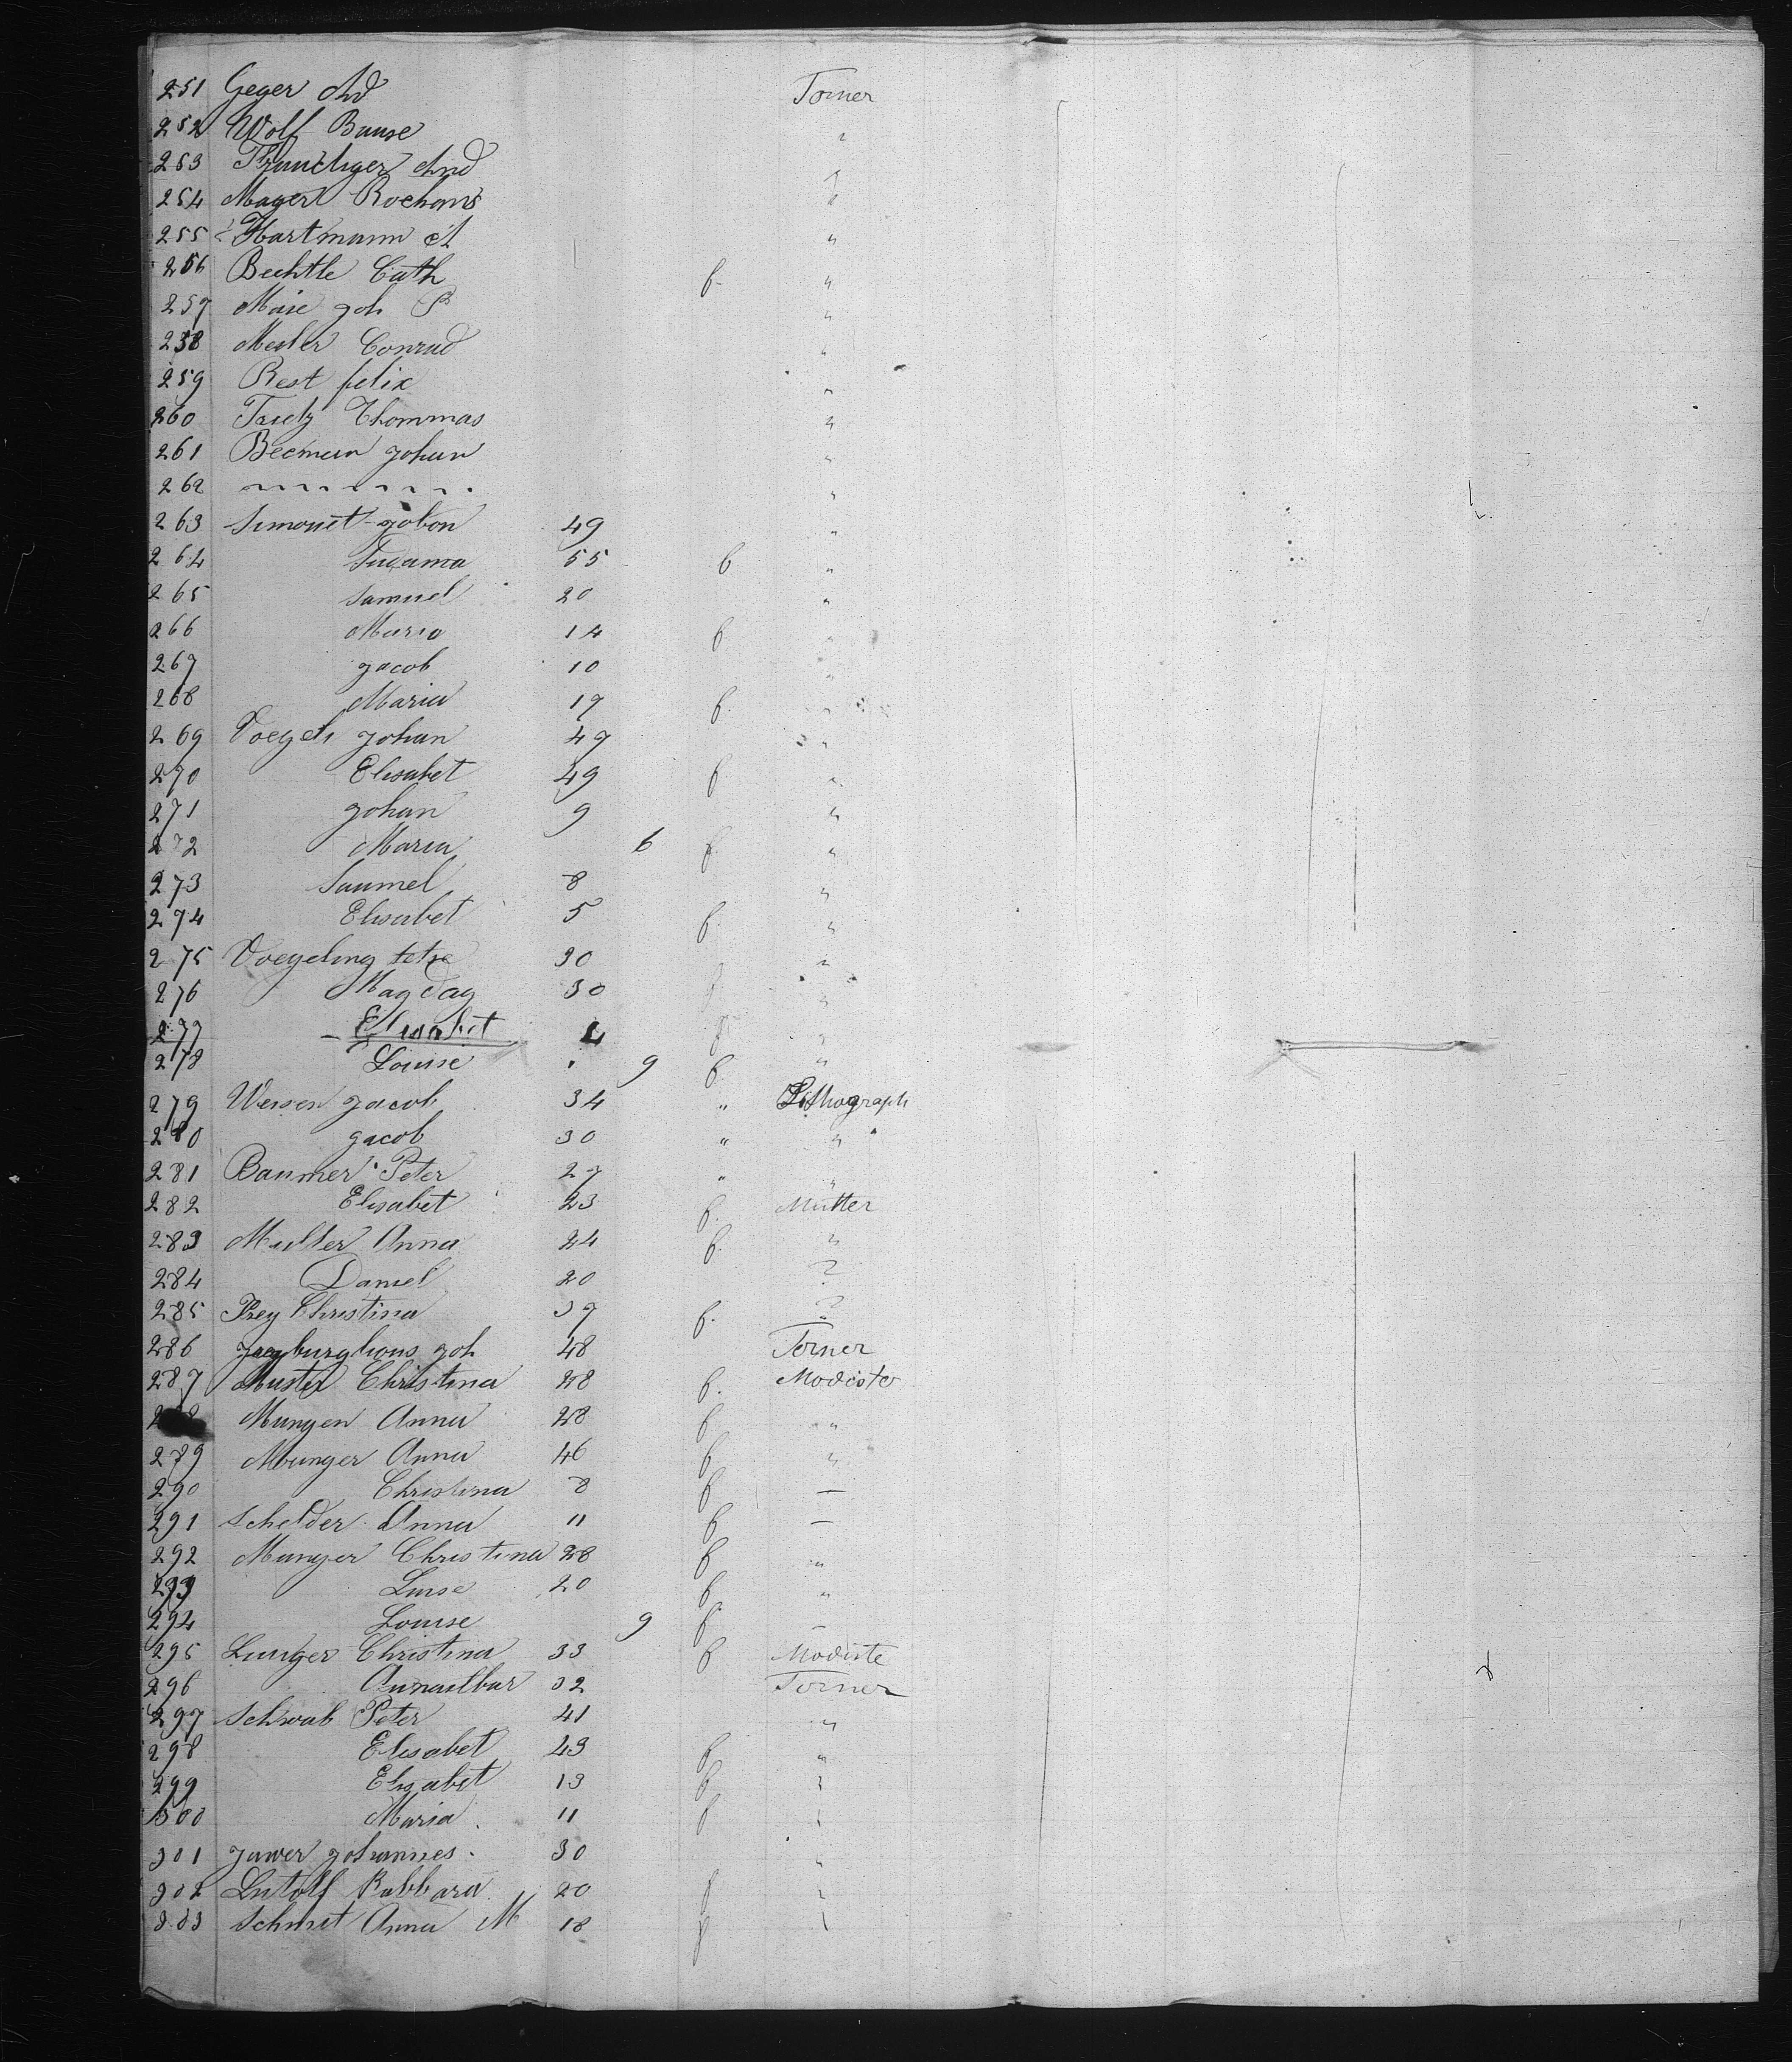 251 Geger And Torner
252 Wolf Bause "
253 And "
254 Mayer Rochons "
255 Hartmann A "
256 Bechtle Cath f. "
257 Maie Joh P "
258 Mesler Conrad "
259 Rest felix "
260 Trietz Thommas "
261 Becmean Johan "
262 ~ ~ ~ ~ ~ ~ ~ "
263 Simonet Jobon 49 "
264 55 f "
265 Samuel 20 "
266 Maria 14 f "
267 Jacob 10 "
268 Maria 17 f. "
269 Voegeli Johan 47 "
270 Elisabet 49 f "
271 Johan 9 "
272 Maria 6 f "
273 Saumel 8 "
274 Elisabet 5 f. "
275 Voegeling 30 "
276 Magdag 30 f "
277 Elisabet 4 f "
278 Louise " 9 f. "
279 Weisen Jacob 34 " Lithograph
280 Jacob 30 " "
281 Baumer Peter 27 " "
282 Elisabet 23 f. Mutter
283 Muller Anna 24 f. "
284 Daniel 20 "
285 Frey Christina 37 f. "
286 Joh 48 Torner
287 Muster Christina 28 f. Modiste
Mungen Anna 28 f "
289 Munger Anna 46 f "
290 Christina 8 f —
291 Schelder Anna 11 f —
292 Munger Christina 28 f "
293 Luise 20 f "
294 Louise 9 f. –
295 Lunger Christina 33 f Modiste
296 32 Torner
297 Schwab Peter 41 "
298 Elisabet 43 f "
299 Elisabet 13 f "
300 Maria 11 f "
301 Jawer Johannes 30 "
302 Lutolf Babbara 20 f "
303 Schmit Anna M 18 f "